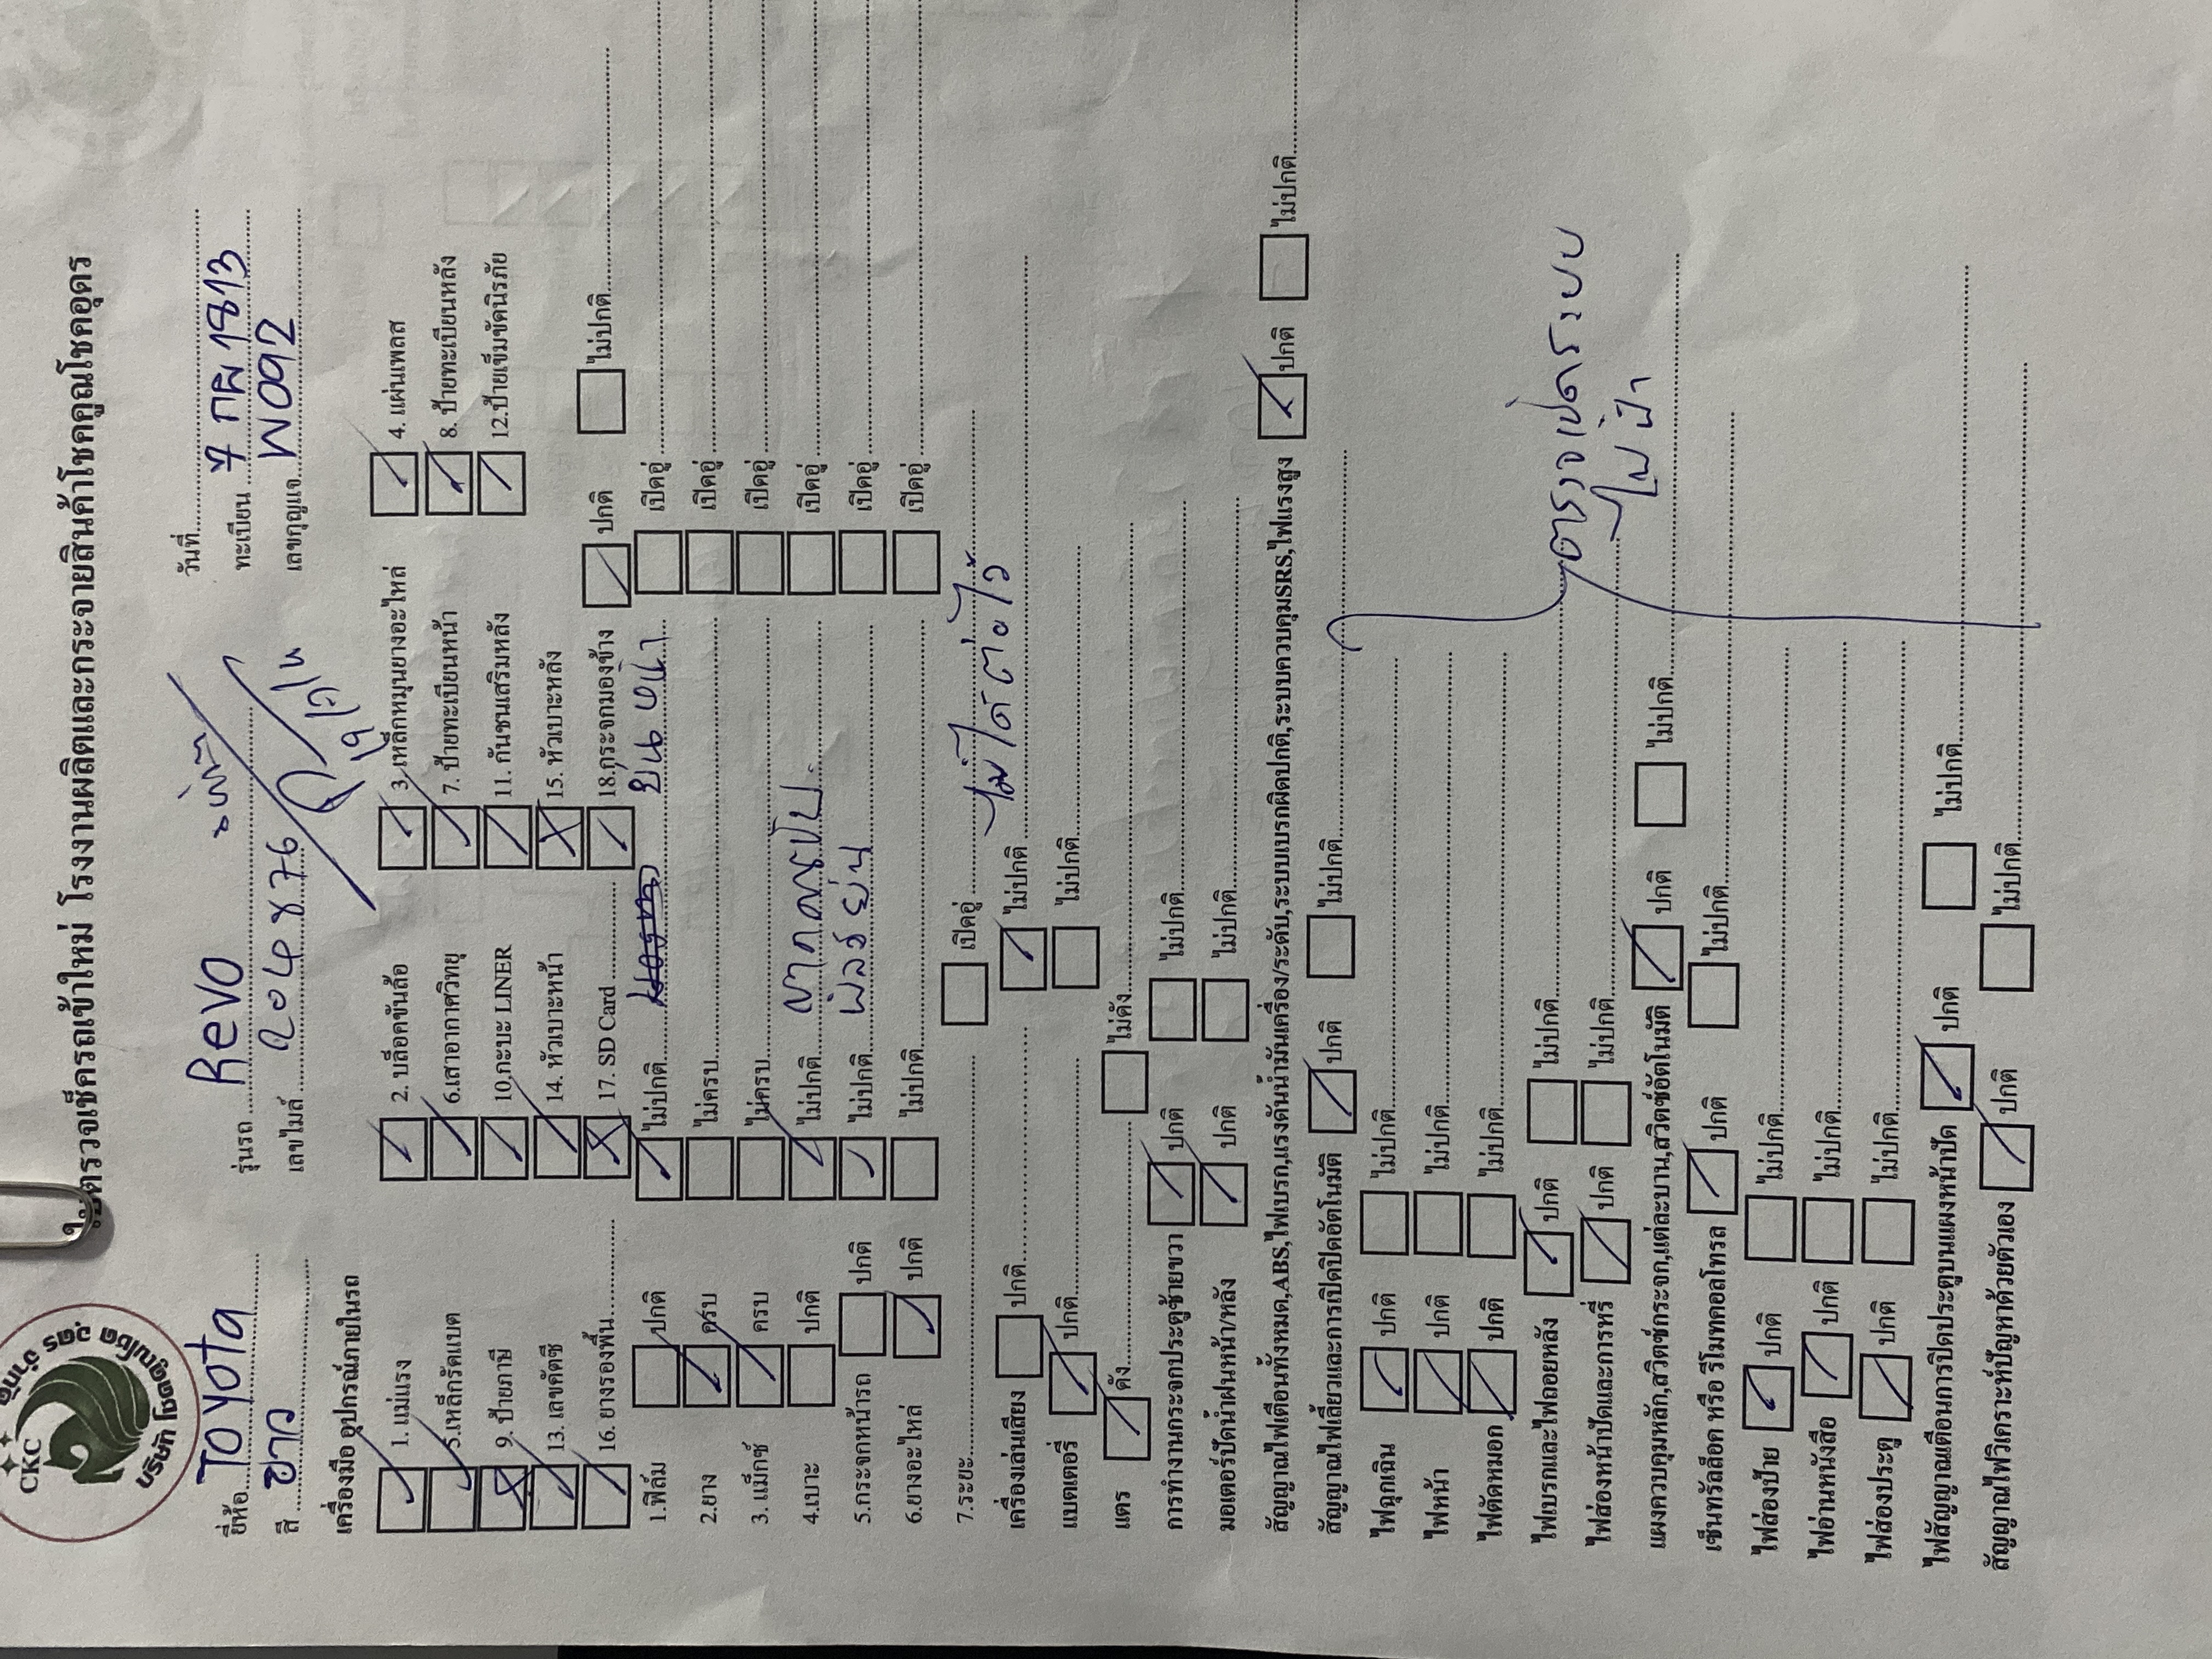 CKC
บริษัท โชคคูณโชค อุดร จำกัด
ใบตรวจเช็ครถเข้าใหม่ โรงงานผลิตและกระจายสินค้าโชคคูณโชคอุดร
วันที่
ยี่ห้อ Toyota รุ่นรถ Revo ทะเบียน 7 กผ 1813
สี ขาว เลขไมล์ 204876 เลขกุญแจ W092
เครื่องมือ อุปกรณ์ภายในรถ
1. แม่แรง 2. บล็อคขันล้อ 3. เหล็กหมุนยางอะไหล่ 4. แผ่นเพลส
5.เหล็กรัดแบต 6.เสาอากาศวิทยุ 7. ป้ายทะเบียนหน้า 8. ป้ายทะเบียนหลัง
9. ป้ายภาษี 10.กะบะ LINER 11. กันชนเสริมหลัง 12.ป้ายเข็มขัดนิรภัย
13. เลขคัตซี 14. หัวเบาะหน้า 15. หัวเบาะหลัง
16. ยางรองพื้น 17. SD Card 18.กระจกมองข้าง ปกติ ไม่ปกติ
1.ฟิล์ม ปกติ ไม่ปกติ เปิดอู่
2.ยาง ครบ ไม่ครบ เปิดอู่
3. แม็กซ์ ครบ ไม่ครบ เปิดอู่
4.เบาะ ปกติ ไม่ปกติ เปิดอู่
5.กระจกหน้ารถ ปกติ ไม่ปกติ เปิดอู่
6.ยางอะไหล่ ปกติ ไม่ปกติ เปิดอู่
7.ระยะ เปิดอู่
เครื่องเล่นเสียง ปกติ ไม่ปกติ ไม่ได้ต่อไว้
แบตเตอรี่ ปกติ ไม่ปกติ
แตร ดัง ไม่ดัง
การทำงานกระจกประตูซ้ายขวา ปกติ ไม่ปกติ
มอเตอร์ปัดน้ำฝนหน้า/หลัง ปกติ ไม่ปกติ
สัญญาณไฟเตือนทั้งหมด,ABS,ไฟเบรก,แรงดันน้ำมันเครื่อง/ระดับ,ระบบเบรกผิดปกติ,ระบบควบคุมSRS,ไฟแรงสูง ปกติ ไม่ปกติ
สัญญาณไฟเลี้ยวและการเปิดปิดอัตโนมัติ ปกติ ไม่ปกติ
ไฟฉุกเฉิน ปกติ ไม่ปกติ
ไฟหน้า ปกติ ไม่ปกติ
ไฟตัดหมอก ปกติ ไม่ปกติ
ไฟเบรกและไฟถอยหลัง ปกติ ไม่ปกติ
ไฟส่องหน้าปัดและการหรี่ ปกติ ไม่ปกติ
แผงควบคุมหลัก,สวิตซ์กระจก,แต่ละบาน,สวิตซ์อัตโนมัติ ปกติ ไม่ปกติ
เซ็นทรัลล็อค หรือ รีโมทคอลโทรล ปกติ ไม่ปกติ
ไฟส่องป้าย ปกติ ไม่ปกติ
ไฟอ่านหนังสือ ปกติ ไม่ปกติ
ไฟส่องประตู ปกติ ไม่ปกติ
ไฟสัญญาณเตือนการปิดประตูบนแผงหน้าปัด ปกติ ไม่ปกติ
สัญญาณไฟวิเคราะห์ปัญหาด้วยตัวเอง ปกติ ไม่ปกติ